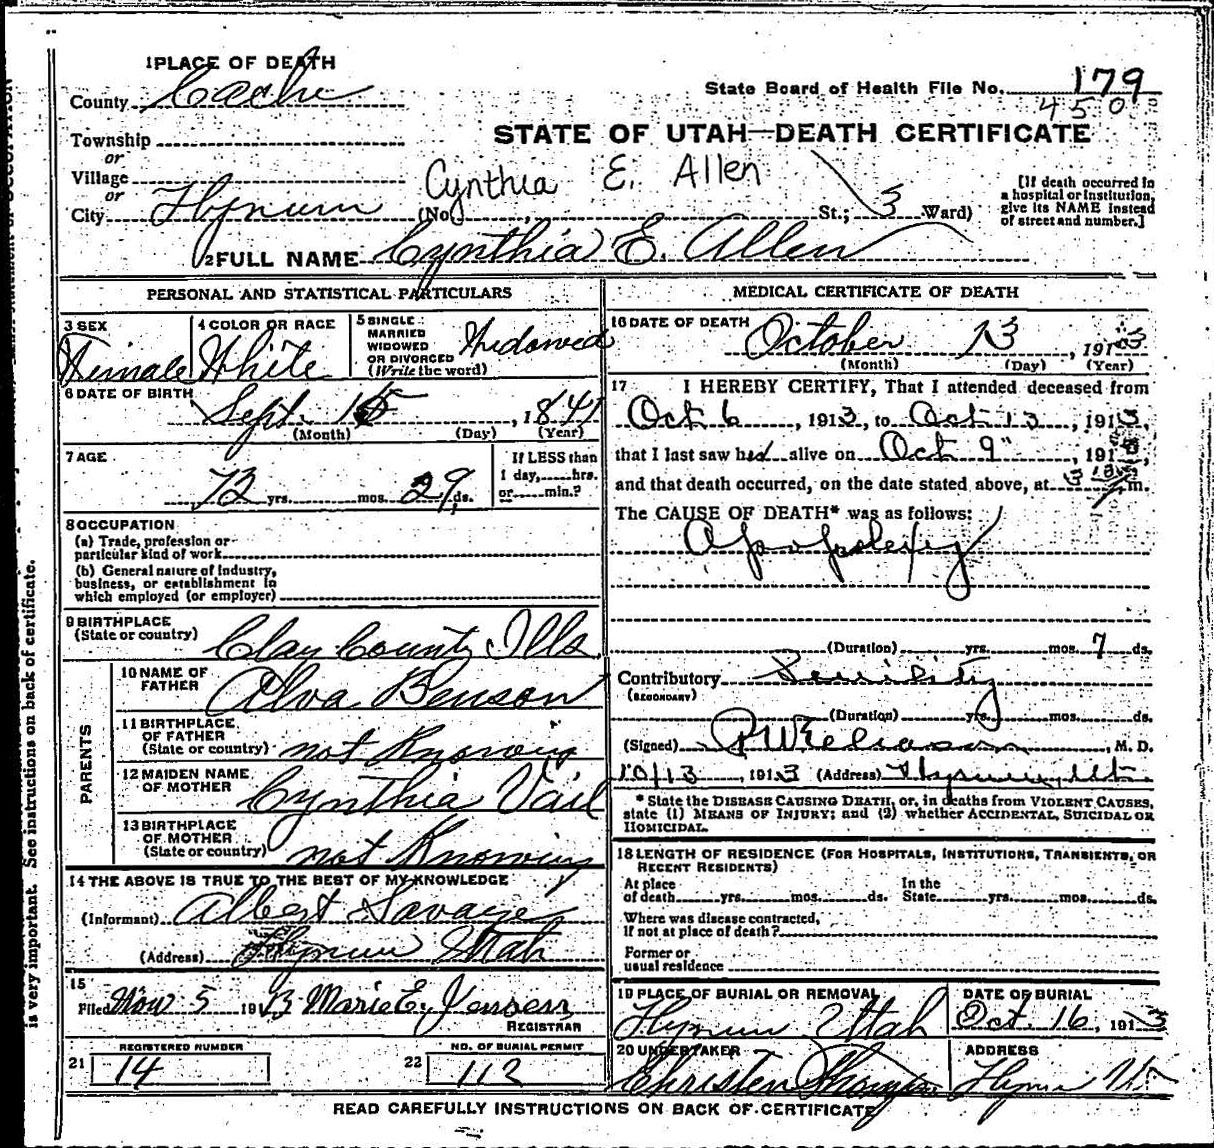 1 PLACE OF DEATH
County Cache
State Board of Health File No. 179
450
Township
STATE OF UTAH—DEATH CERTIFICATE
or
Village
or
Cynthia E. Allen
City Hyrum (No. , St.; 3 Ward)
[If death occurred in a hospital or institution, give its NAME instead of street and number.]
2 FULL NAME Cynthia E. Allen
PERSONAL AND STATISTICAL PARTICULARS
3 SEX
Female
4 COLOR OR RACE
White
5 SINGLE
MARRIED
WIDOWED
OR DIVORCED
(Write the word)
Widowed
6 DATE OF BIRTH
Sept. 15, 1841
(Month) (Day) (Year)
7 AGE
72 yrs. mos. 29 ds.
If LESS than
1 day, hrs.
or min.?
8 OCCUPATION
(a) Trade, profession or
particular kind of work
(b) General nature of industry,
business, or establishment in
which employed (or employer)
9 BIRTHPLACE
(State or country) Clay County Ills
PARENTS
10 NAME OF
FATHER Alva Benson
11 BIRTHPLACE
OF FATHER
(State or country) not Knowing
12 MAIDEN NAME
OF MOTHER Cynthia Vail
13 BIRTHPLACE
OF MOTHER
(State or country) not Knowing
14 THE ABOVE IS TRUE TO THE BEST OF MY KNOWLEDGE
(Informant) Albert Savage
(Address) Hyrum Utah
15
Filed Nov 5 1913 Marie E. Jensen
REGISTRAR
REGISTERED NUMBER
21 14
NO. OF BURIAL PERMIT
22 112
MEDICAL CERTIFICATE OF DEATH
16 DATE OF DEATH
October 13, 1913
(Month) (Day) (Year)
17 I HEREBY CERTIFY, That I attended deceased from
Oct 6, 1913, to Oct 13, 1913,
that I last saw her alive on Oct 9", 191
and that death occurred, on the date stated above, at 3 m.
The CAUSE OF DEATH* was as follows:
Apoplexy
(Duration) yrs. mos. 7 ds.
Contributory Senility
(SECONDARY)
(Duration) yrs. mos. ds.
(Signed) P W Eliason, M. D.
10/13, 1913 (Address) Hyrum, Ut
* State the DISEASE CAUSING DEATH, or, in deaths from VIOLENT CAUSES,
state (1) MEANS OF INJURY; and (2) whether ACCIDENTAL, SUICIDAL OR
HOMICIDAL.
18 LENGTH OF RESIDENCE (FOR HOSPITALS, INSTITUTIONS, TRANSIENTS, OR
RECENT RESIDENTS)
At place
of death yrs. mos. ds.
In the
State yrs. mos. ds.
Where was disease contracted,
if not at place of death?
Former or
usual residence
19 PLACE OF BURIAL OR REMOVAL
Hyrum Utah
DATE OF BURIAL
Oct. 16, 1913
20 UNDERTAKER
Christen
ADDRESS
Hyrum
READ CAREFULLY INSTRUCTIONS ON BACK OF CERTIFICATE
is very important. See instructions on back of certificate.